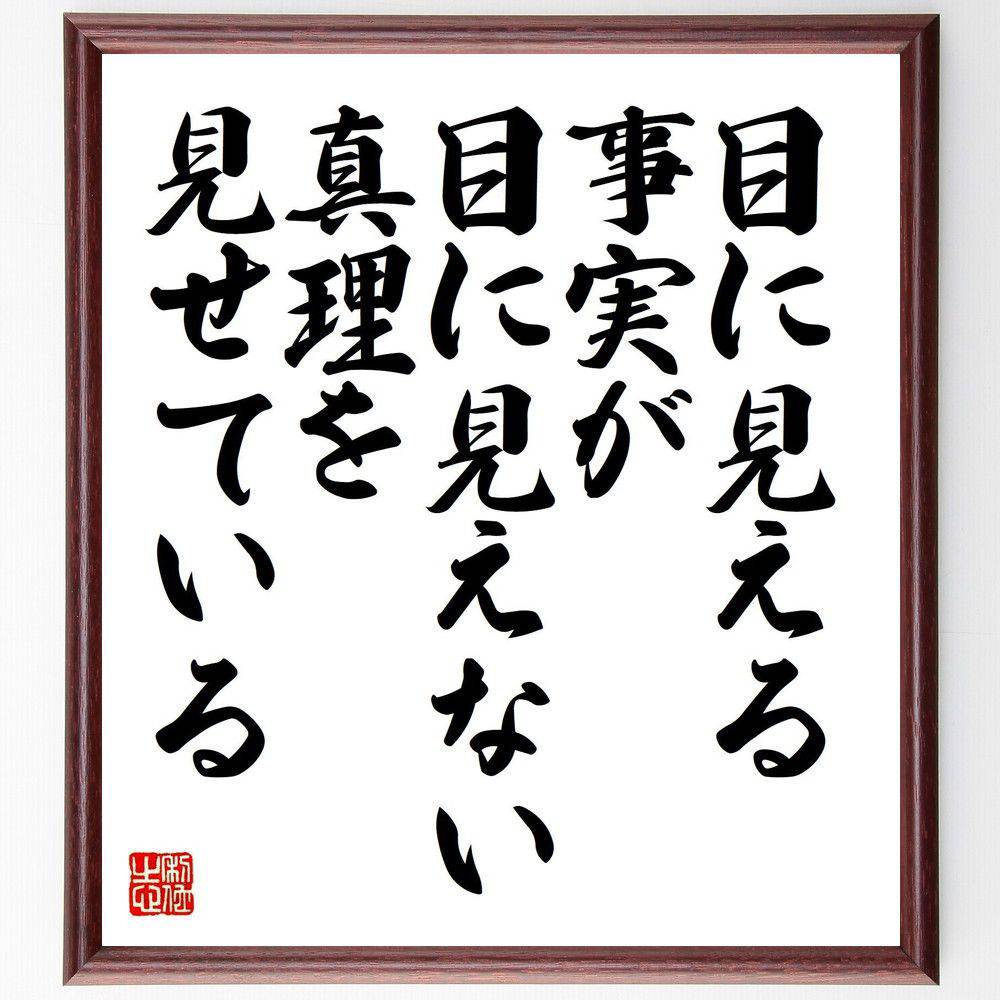 目に見える
事実が
目に見えない
真理を
見せている